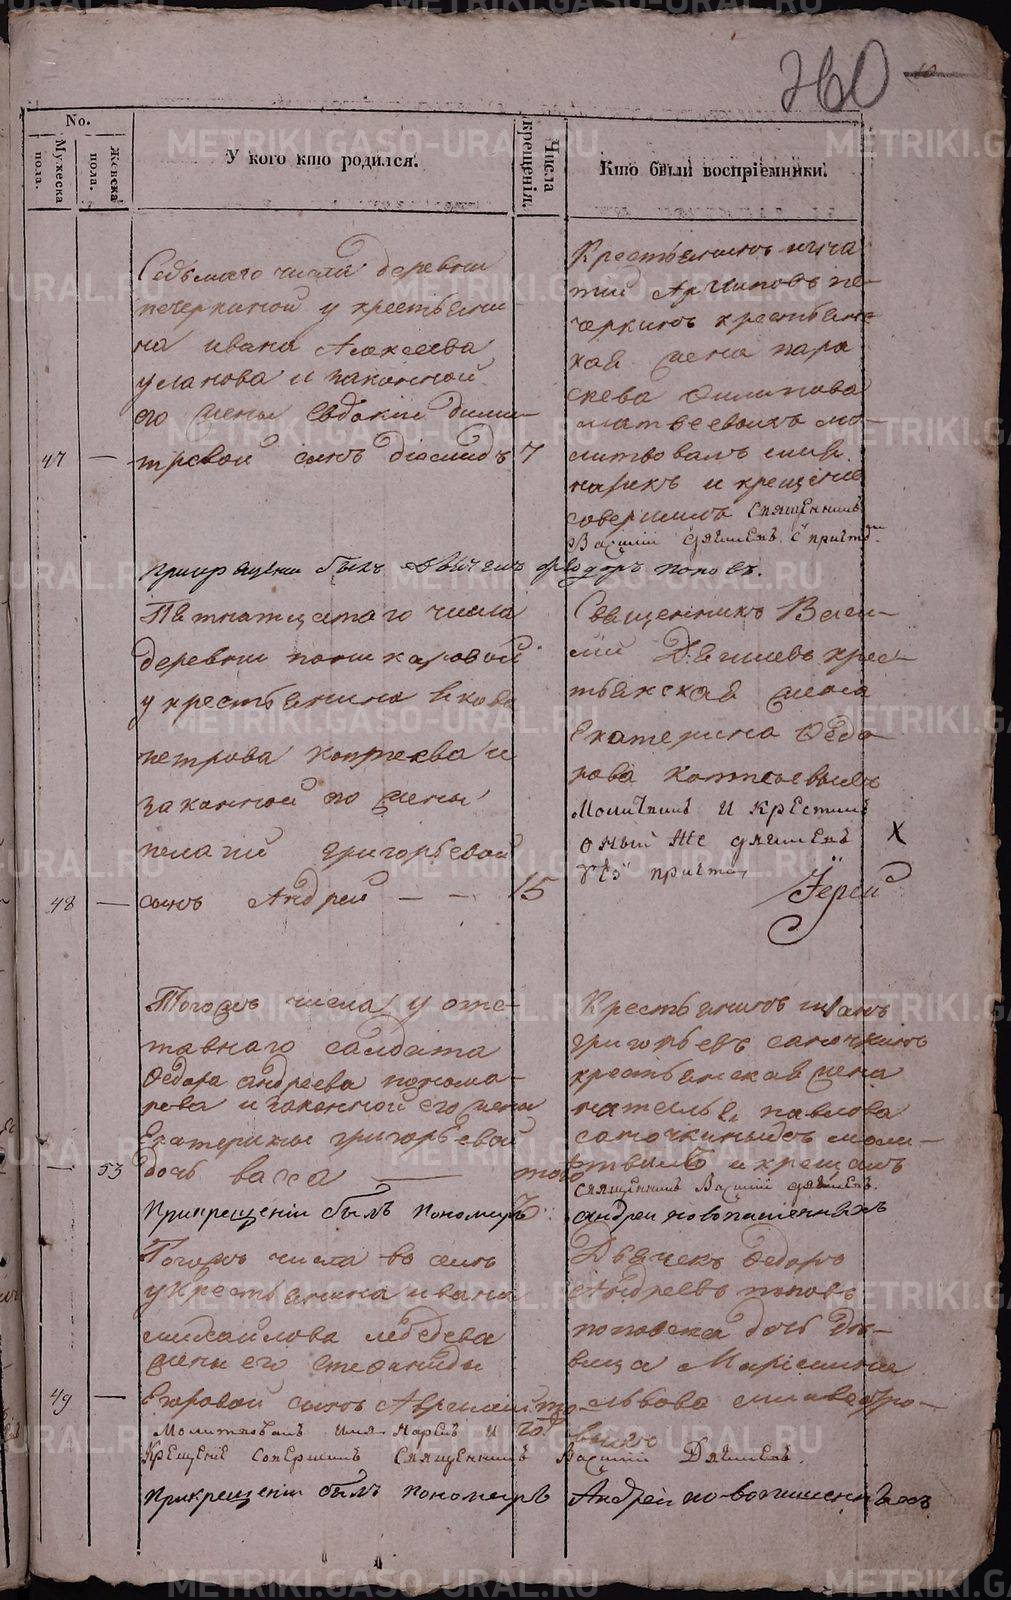 360 10
No.
Мужеска пола.
Женска пола.
У кого кто родился.
Числа крещенія.
Кто были воспріемники.
Седьмаго числа деревни
печеркиной у крестьяни
на ивана Алексеева
уланова и законной
его жены Евдокии дими
47 — тревой сынъ диомидъ 7
Крестьянинъ игна
тий Архиповъ пе-
черкинъ крестьянс
кая жена пара
скева Филипова
матвеевыхъ мо-
литвовалъ имя
нарекъ и крещение
совершилъ священникъ
Василий
прикрещении былъ дьячекъ Феодоръ поповъ.
Пятнатцатаго числа
деревни
у крестьянина
петрова коптяева и
законной его жены
пелагии григорьевой
48 — сынъ Андрей — — 15
Священникъ Васи-
лий крес-
тьянская жена
Екатерина Федо
рова
Молитвилъ и крестилъ
оный же
Х
Іерей
Тогожъ числа у отс-
тавного салдата
Федора андреева понома-
рева и законной его жены
Екатерины григорьевой
— 53 дочь васса — того
Крестьянинъ иванъ
григорьевъ
крестьянская жена
наталья павлова
моли-
твилъ и крещалъ
священникъ Василий
Прикрещении былъ пономарь андрей новопашенныхъ
Тогожъ числа во селе
у крестьянина ивана
михайлова лебедева
жены его стефаниды
49 — Егоровой сынъ Аврамий того
Дьячекъ Федоръ
Андреевъ поповъ
поповска дочь дѣ-
вица
львова силвестро-
выхъ
Молитвовалъ имя нарекъ и
Крещение совершилъ священникъ Василий
Прикрещении былъ пономарь Андрей новопашенныхъ
METRIKI.GASO-URAL.RU